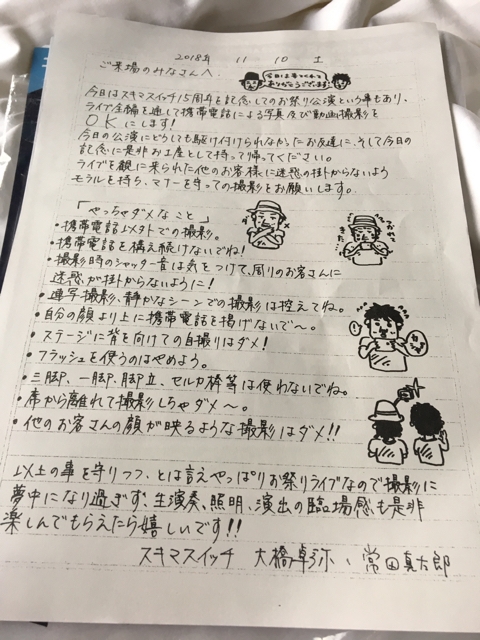 2018年 11 10 土
ご来場のみなさんへ
今日は来てくれて
ありがとうございます!
今日はスキマスイッチ15周年を記念してのお祭り公演という事もあり、
ライブ全編を通して携帯電話による写真及び動画撮影を
OKにします!
今日の公演にどうしても駆け付けられなかったお友達に、そして今日の
記念に是非お土産として持って帰ってください。
ライブを観に来られた他のお客様に迷惑の掛からないよう
モラルを持ち、マナーを守っての撮影をお願いします。
「やっちゃダメなこと」
・携帯電話以外での撮影。
・携帯電話を構え続けないでね!
・撮影時のシャッター音は気をつけて、周りのお客さんに
迷惑が掛からないように!
・連写撮影、静かなシーンでの撮影は控えてね。
・自分の顔より上に携帯電話を掲げないで〜。
・ステージに背を向けての自撮りはダメ!
・フラッシュを使うのはやめよう。
・三脚、一脚、脚立、セルカ棒等は使わないでね。
・席から離れて撮影しちゃダメ〜。
・他のお客さんの顔が映るような撮影はダメ!!
以上の事を守りつつ、とは言えやっぱりお祭りライブなので撮影に
夢中になり過ぎず、生演奏、照明、演出の臨場感も是非
楽しんでもらえたら嬉しいです!!
スキマスイッチ 大橋卓弥、常田真太郎